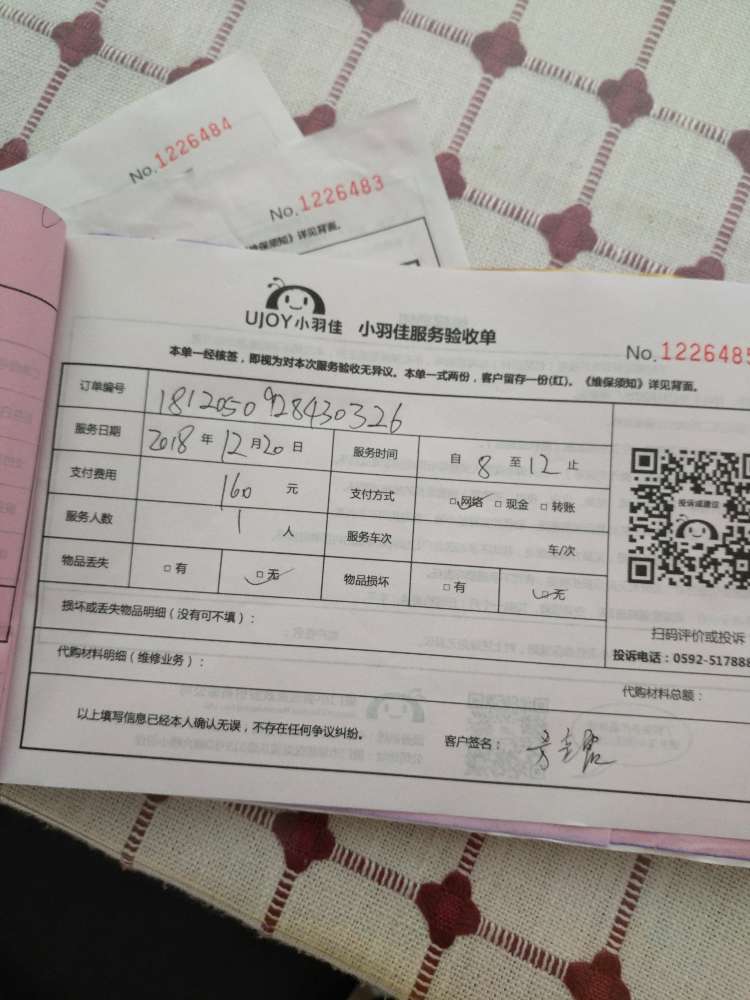 No.1226484
No.1226483
《维保须知》详见背面。
UJOY小羽佳 小羽佳服务验收单
No.1226485
本单一经核签，即视为对本次服务验收无异议。本单一式两份，客户留存一份(红)。《维保须知》详见背面。
订单编号 1812050928430326
服务日期 2018 年 12 月 20 日 服务时间 自 8 至 12 止
支付费用 160 元 支付方式 □网络 □现金 □转账
服务人数 1 人 服务车次 车/次
物品丢失 □有 □无 物品损坏 □有 □无
投诉或建议
损坏或丢失物品明细（没有可不填）：
扫码评价或投诉
投诉电话：0592-517888
代购材料明细（维修业务）：
代购材料总额：
以上填写信息已经本人确认无误，不存在任何争议纠纷。 客户签名：